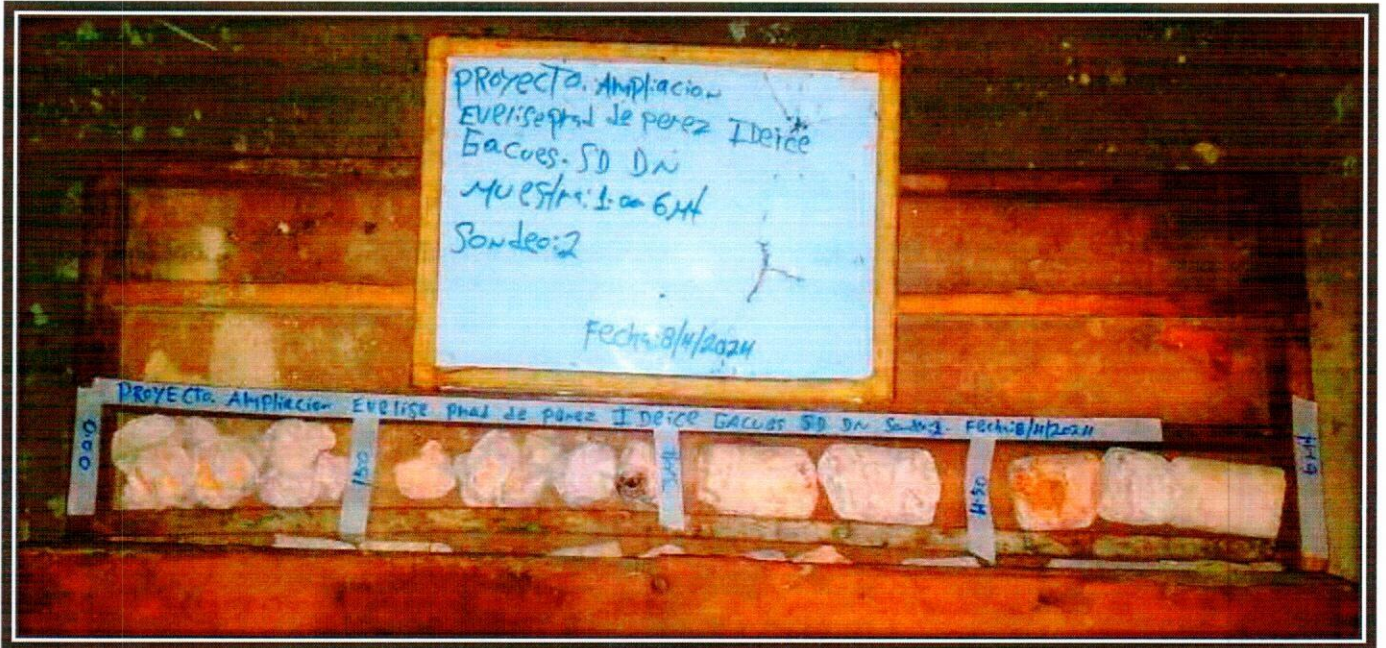 PROYECTO. Ampliacion
Evelise prad de perez IDeice
Gacues. SD DN
Muestra: 1 a 6 Mt
Sondeo: 2
Fecha: 8/4/2024
PROYECTO. Ampliacion Evelise prad de perez IDeice GACUES SD DN Sondeo 1. Fecha: 8/4/2024
0.00
1.50
3Mt
4.50
6Mt